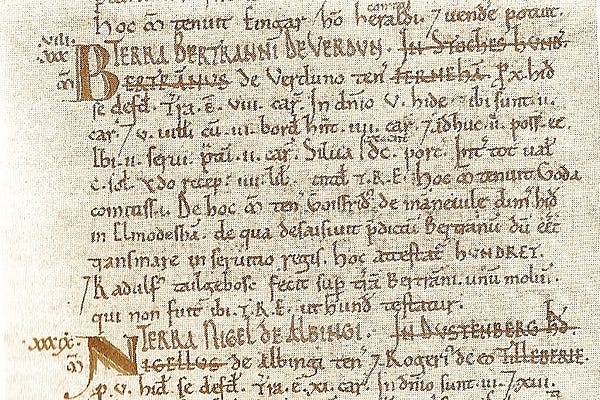 Hoc m̄ tenuit Eingar hō heraldi, 7 uende potuit.
.xxxviii. TERRA BERTRANNI DE VERDUN. IN STOCHES HUND.
m̄ BERTRANUS de Verduno ten' FERNEHĀ. P x. hid
se defd. Tr̄a. ē. viii. car̄. In dn̄io v. hidę. ibi sunt .ii.
car̄. 7 v. uilli cū .iii. bord hn̄t .iiii. car̄. 7 adhuc .ii. poss. ēē.
Ibi .ii. serui. p̄tū .ii. car̄. Silua sexcent porc. Int tot ual
c. sol. Qdo recep: .iiii. lib. T.R.E. Hoc m̄ tenuit Goda
comitissa. De hoc m̄ ten Goisfrid de maneuile dim hid
in Elmodeshā. de qua desaisiuit p̄dictū Bertranū dū eēt
transmare in seruitio regis. hoc attestat HUNDRET.
7 Radulf tailgebosc fecit sup trā Bertrāni unū molin
qui non fuit ibi .T.R.E. ut hund testatur.
.xxxix. TERRA NIGEL DE ALBINGI. IN DUSTENBERG HD.
m̄ NIGELLUS de Albingi ten 7 Rogeri de eo TILLEBERIE.
p .v. hid se defd. Tr̄a. ē. xi. car̄. In dn̄io sunt .iii. 7 xiii.